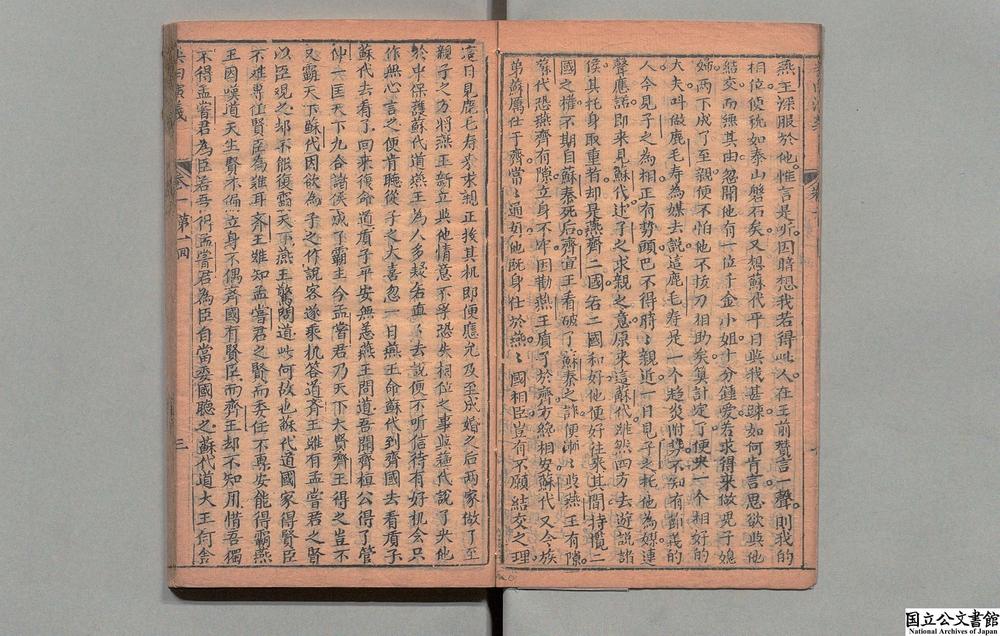 燕王深服於他惟言是听因暗想我若得此人在王前贊言一聲則我的
相位便穏如泰山磐石矣又想蘇代平日與我甚踈如何肯言思欲與他
結交而無其由忽聞他有一位千金小姐十分鍾愛若求得來做兒子媳
婦两下成了至親便不怕他不拔刀相助矣算計定了便央一个相好的
大夫呌做鹿毛寿為媒去説這鹿毛寿是一个趋炎附势不知有節義的
人今見子之為相正有勢頭巴不得時〻親近一日見子之托他為媒連
聲應諾即来見蘇代述子之求親之意原来這蘇代雖然四方去遊説諸
侯其托身取重者却是燕齊二國若二國和好他便好往来其間持攬二
國之權不期自蘇秦死后齊宣王看破了蘇秦之詐便漸〻與燕王有隙
蘇代恐燕齊有隙立身不牢因勸燕王質子於齊方纔相安蘇代又令族
弟蘇厲仕于齊當〻通好他既身仕於燕〻國相臣豈有不願結交之理
這日見鹿毛寿来求親正投其机即便應允及至成婚之后两家做了至
親子之方将燕王新立與他情意不孚恐失相位之事與蘓代說了央他
於中保護蘇代道燕王為人多疑若直〻去説便不听信待有好机会只
作無心言之便肯聴從子之大喜忽一日燕王命蘇代到齊國去看質子
蘇代去看了回來復命道質子平安無恙燕王問道吾聞齊桓公得了管
仲一匡天下九合諸侯成了霸主今孟嘗君乃天下大賢齊王得之豈不
又霸天下蘇代因欲為子之作説客遂乘机答道齊王雖有孟嘗君之賢
以臣观之却不能復霸天下燕王驚問道此何故也蘇代道國家得賢臣
不难專任賢臣為难耳齐王雖知孟嘗君之賢而委任不專安能得霸燕
王因嘆道天生賢不偏立身不偶齐國有賢臣而齊王却不知用惜吾獨
不得孟嘗君為臣若吾得孟嘗君為臣自當委國聴之蘇代道大王何舍
卷一
第一囬
三
国立公文書館
National Archives of Japan